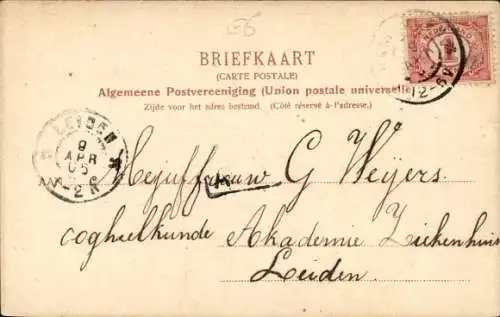 G6
BRIEFKAART
(CARTE POSTALE)
Algemeene Postvereeniging (Union postale universelle)
Zijde voor het adres bestemd. (Côté réservé à l'adresse.)
1
12-6V
LEIDEN
9
APR
05
-2 N
Mejuffrouw G Weijers.
coghselkunde Akademie Ziekenhuis
Leiden.